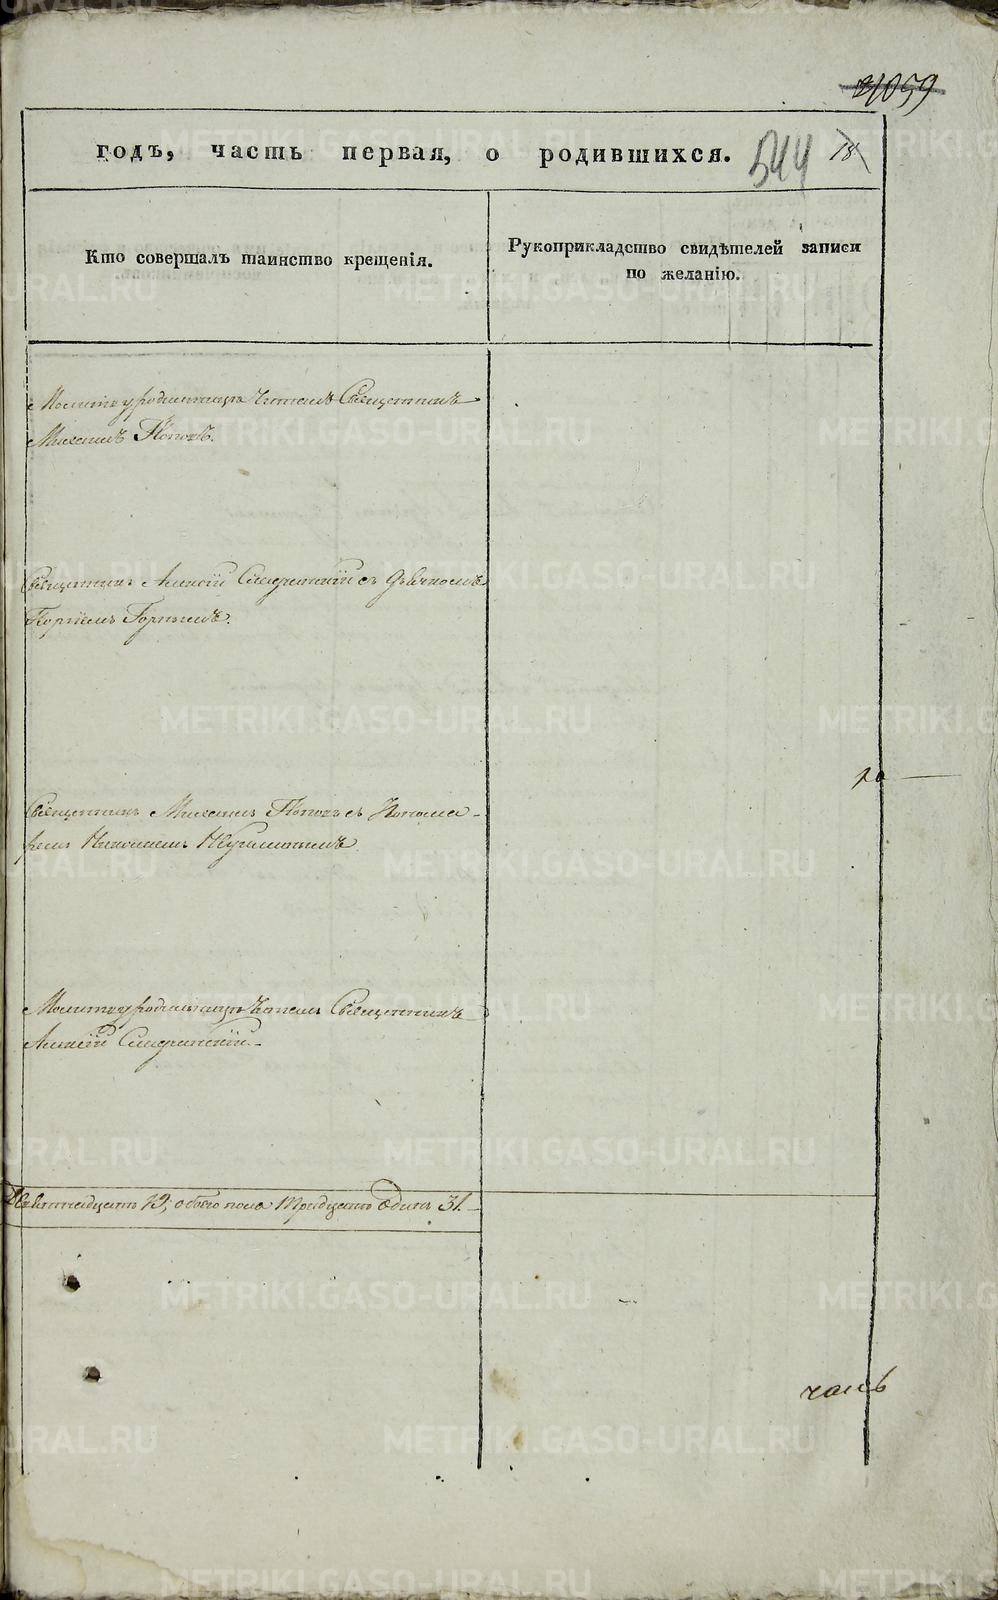 1059
годъ, часть первая, о родившихся. 544 18
Кто совершалъ таинство крещенія.
Рукоприкладство свидѣтелей записи
по желанію.
Молитву родильницѣ читалъ Священникъ
Михаилъ Поповъ.
Священникъ Алексій Смеранскій съ Дьячкомъ
Священникъ Михаилъ Поповъ съ Понома-
ремъ Николаемъ
Молитву родильницѣ читалъ Священникъ
Алексій
Девятнадцать 19, обоего пола тридцать одинъ 31.
ра
часть
METRIKI.GASO-URAL.RU